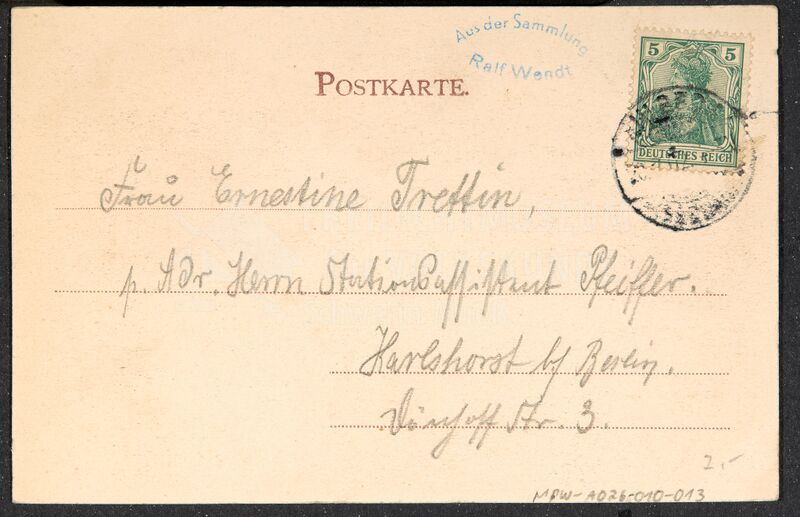 Aus der Sammlung
Ralf Wendt
POSTKARTE.
5 5
DEUTSCHES REICH
Frau Ernestine Trettin,
p. Adr. Herrn Stationsassistent Pfeiffer.
Karlshorst b/ Berlin.
Str. 3.
2.-
MPW-A026-010-013